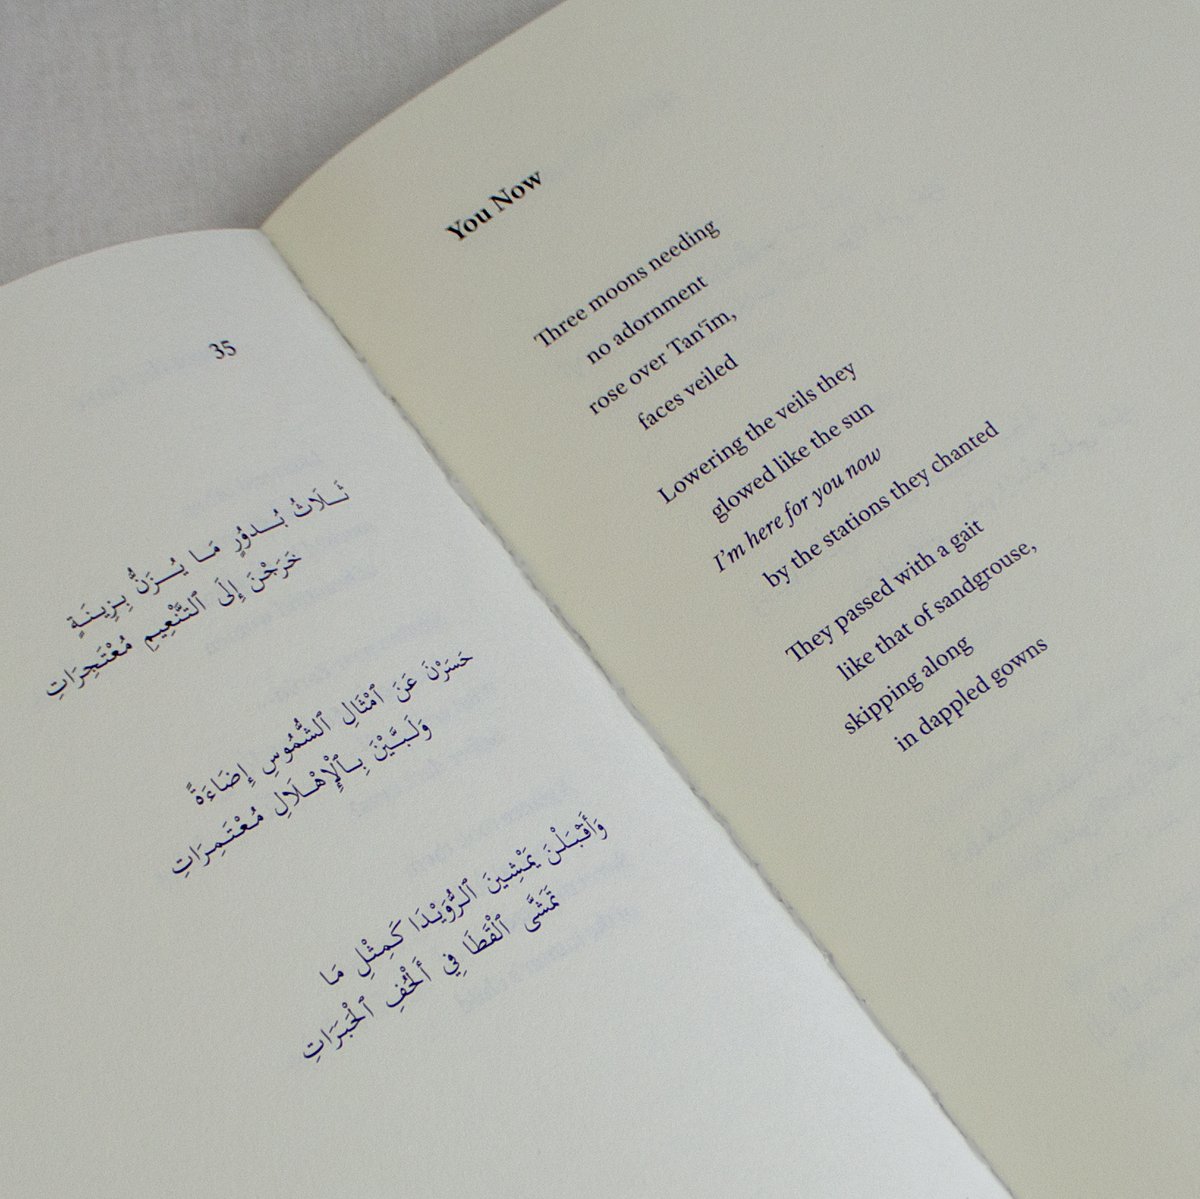 35
ثَلَاثُ بُدُورٍ مَا يُزَنُّ بِزِينَةٍ
خَرَجْنَ إِلَى ٱلتَّنْعِيمِ مُعْتَجِرَاتِ
حَسَرْنَ عَنَ ٱمْثَالِ ٱلشُّمُوسِ إِضَاءَةً
وَلَبَّيْنَ بِٱلْإِهْلَالِ مُعْتَمِرَاتِ
وَأَقْبَلْنَ يَمْشِينَ ٱلرُّوَيْدَا كَمِثْلِ مَا
تَمَشَّى ٱلْقَطَا فِي أَلْحُفِ ٱلْحَبَرَاتِ
You Now
Three moons needing
no adornment
rose over Tanʿīm,
faces veiled
Lowering the veils they
glowed like the sun
I'm here for you now
by the stations they chanted
They passed with a gait
like that of sandgrouse,
skipping along
in dappled gowns